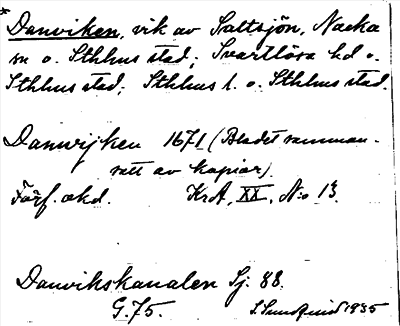 * Danviken, vik av Saltsjön, Nacka
sn o. Sthlms stad; Svartlösa hd o.
Sthlms stad; Sthlms l. o. Sthlms stad.
Danwijken 1671 (Bladet samman-
satt av kopior).
Förf. okd. KrA, XX, No 13.
Danvikskanalen Sj. 88.
G. 75. 1935